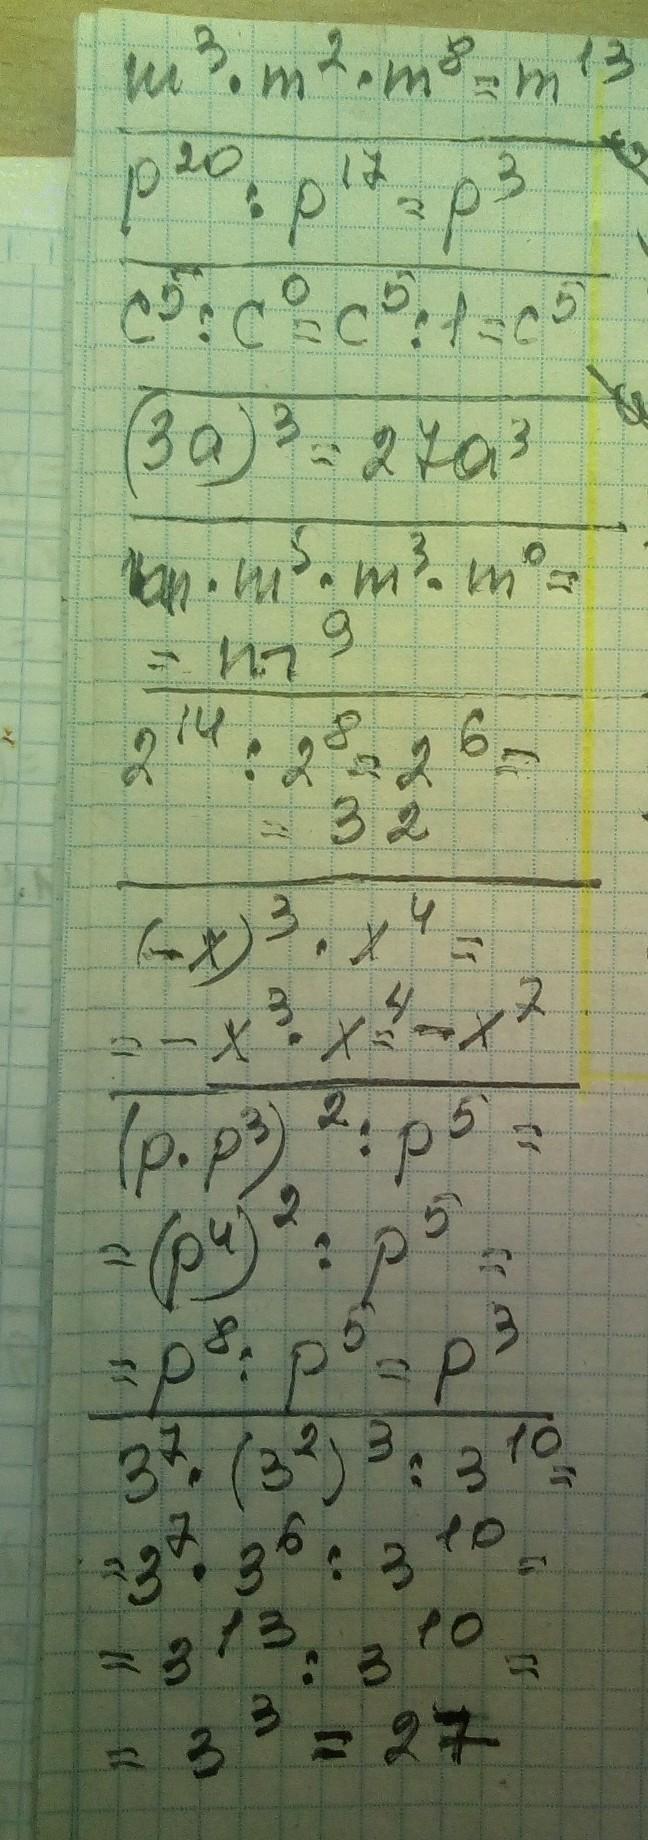 m³·m²·m⁸=m¹³
p²⁰:p¹⁷=p³
c⁵:c⁰=c⁵:1=c⁵
(3a)³=27a³
m·m⁵·m³·m⁰=
=m⁹
2¹⁴:2⁸=2⁶=
=32
(-x)³·x⁴=
=-x³·x⁴=-x⁷
(p·p³)²:p⁵=
=(p⁴)²:p⁵=
=p⁸:p⁵=p³
3⁷·(3²)³:3¹⁰=
=3⁷·3⁶:3¹⁰=
=3¹³:3¹⁰=
=3³=27